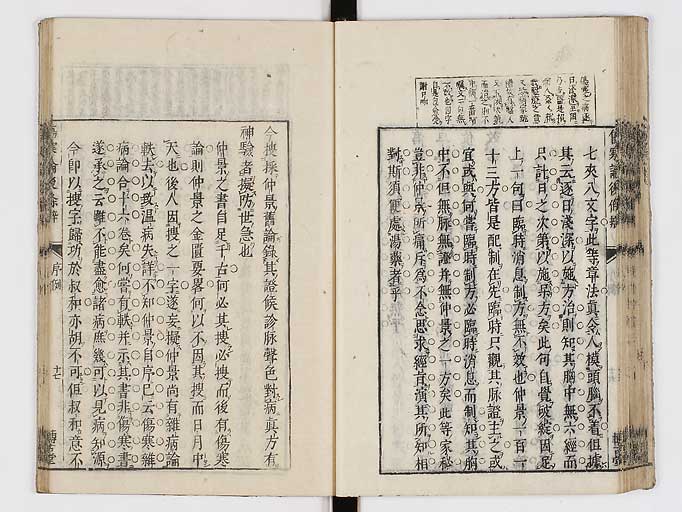 七夾八文字此等章法眞令人模頭腦不着但據
其云逐日淺深以施方治則知其胸中無六經而
只計日之次第以施呆方矣此句自覺破綻因足
上一句曰臨時消息制方無不效也仲景一百一
十三方皆是配制在先臨時只觀其脉證主之或
宜或與何嘗臨時制方必臨時消息而制知其胸
中不但無脉無證并無仲景之一方矣此等家秘
豈非仲景所痛斥為不念思求經旨演其所知相
對斯須便處湯藥者乎
今搜採仲景舊論錄其證候診脉聲色對病眞方有
神驗者擬防世急也
仲景之書自足千古何必其搜而後有傷寒
論則仲景之金匱要畧何以不因其搜而日月中
天也後人因搜之一字遂妄擬仲景尚有雜病論
軼去以致温病失詳不知仲景自序已云傷寒雜
病論合十六卷矣何嘗有軼并示其書非傷寒書
遂承之云雖不能盡愈諸病庶幾可以見病知源
今即以搜字歸功於叔和亦胡不可但叔和意不
序例